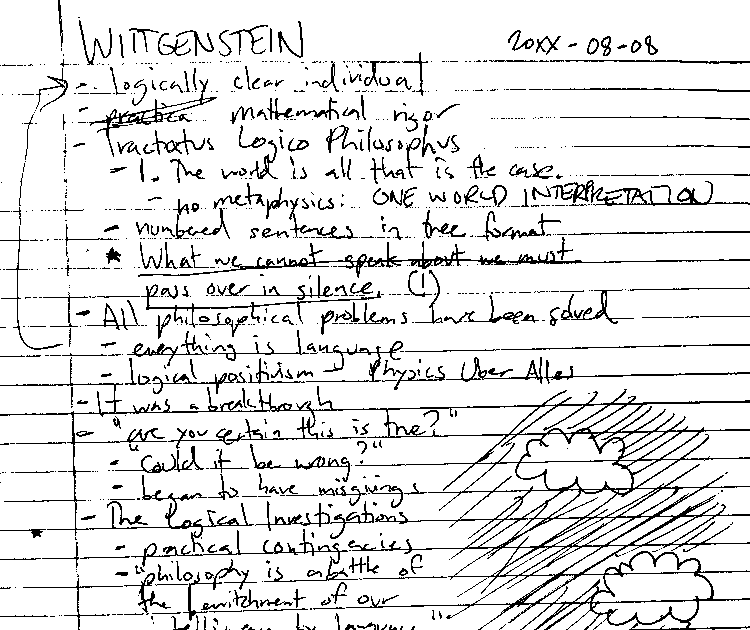 WITTGENSTEIN 20XX-08-08
- logically clear individual
- practica mathematical rigor
- Tractatus Logico Philosophus
- 1. The world is all that is the case.
- no metaphysics: ONE WORLD INTERPRETATION
- numbered sentences in tree format
* What we cannot speak about we must
pass over in silence. (!)
- All philosophical problems have been solved
- everything is language
- logical positivism → Physics Uber Alles
- It was a breakthrough
- "are you certain this is true?"
- "Could it be wrong?"
- began to have misgivings
- The Logical Investigations
* - practical contingencies
- "philosophy is a battle of
the bewitchment of our
intelligence by language"